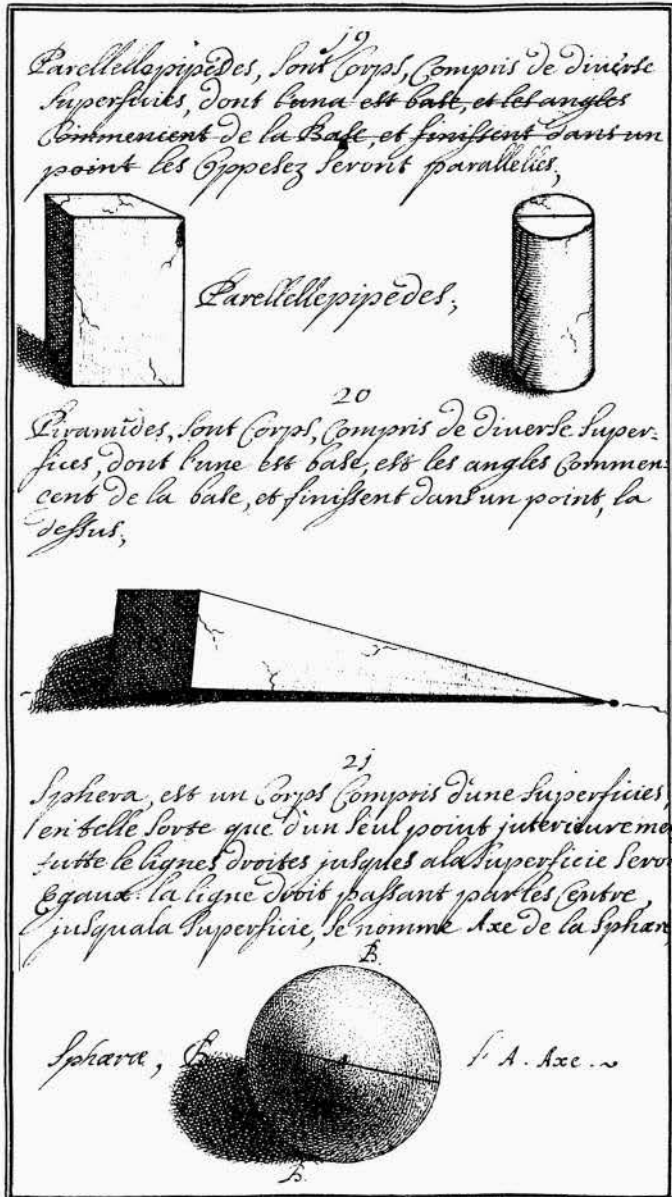 19
Parellellepipedes, sont Corps, Compris de diverse
superficies, dont l'una est base, et les angles
Commencient de la Base, et finissent dans un
point les Oppesez seront parallelles,
Parellellepipedes;
20
Piramides, sont Corps, Compris de diverse super=
fices, dont l'une est base, est les angles Commen=
cent de la base, et finissent dans un point, la
dessus;
21
Sphera, est un Corps Compris d'une superficies
en telle sorte que d'un seul point interieurem
tutte le lignes droites jusques a la superficie sero
Egaux: la ligne droit passant par les Centre,
jusqua la superficie, se nomme Axe de la Sphær
B.
Sphæræ, B.
A. Axe.
A
B.